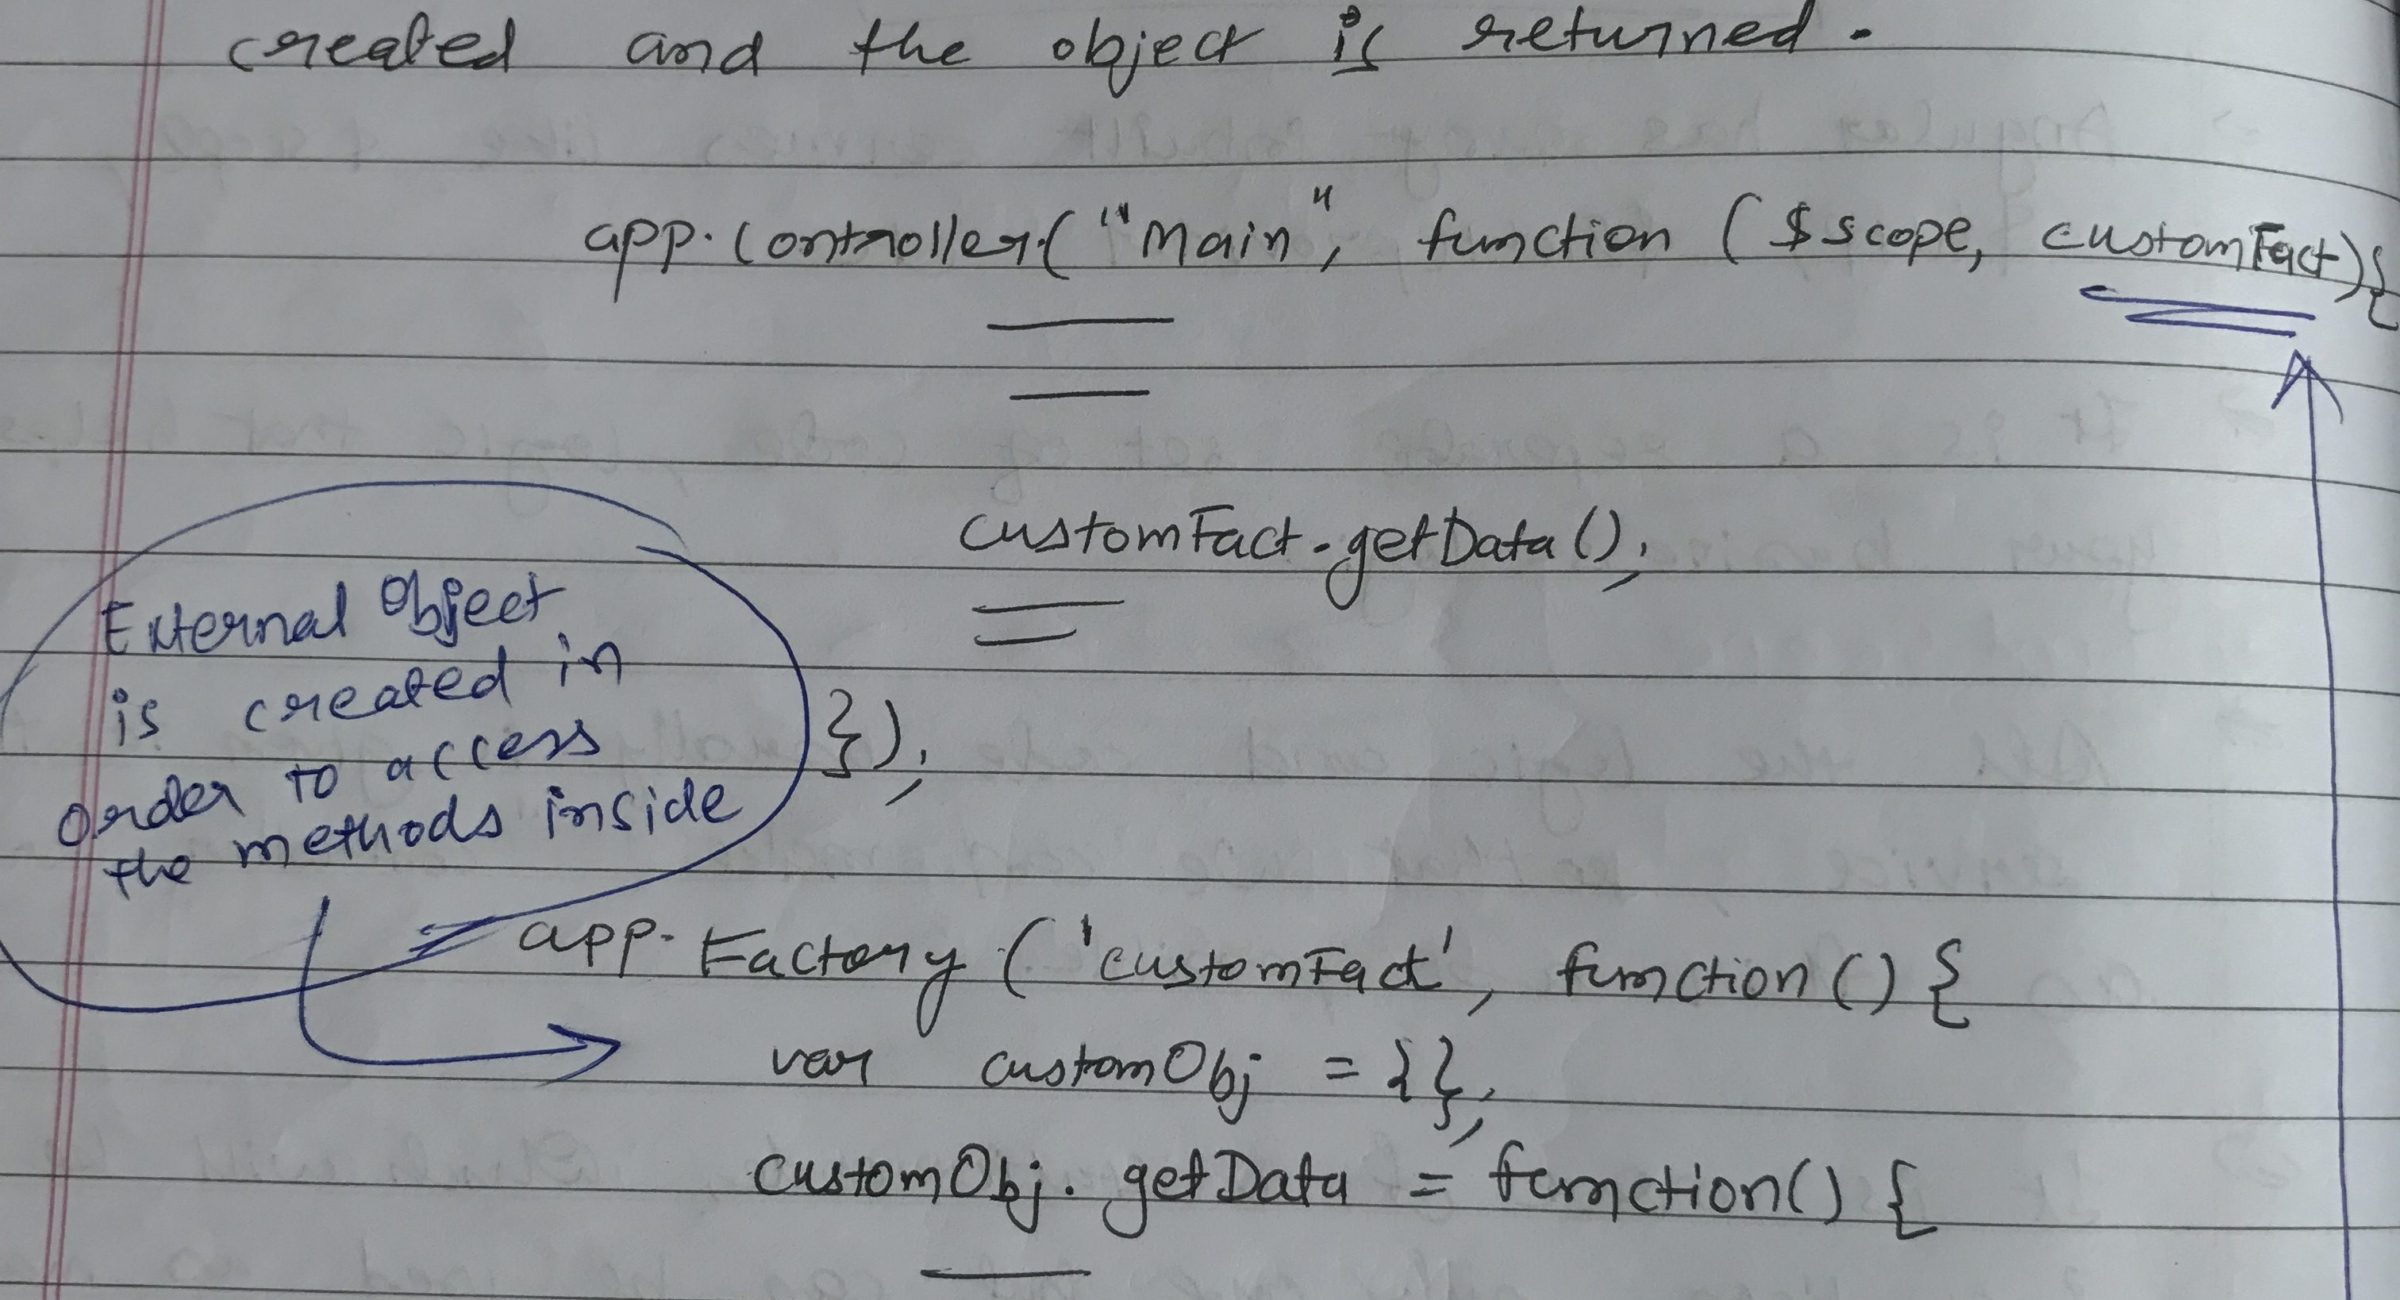 created and the object is returned.
app.controller("Main", function ($scope, customFact){
customFact.getData();
});
External Object
is created in
order to access
the methods inside
app.Factory('customFact', function(){
var customObj = {};
customObj.getData = function(){